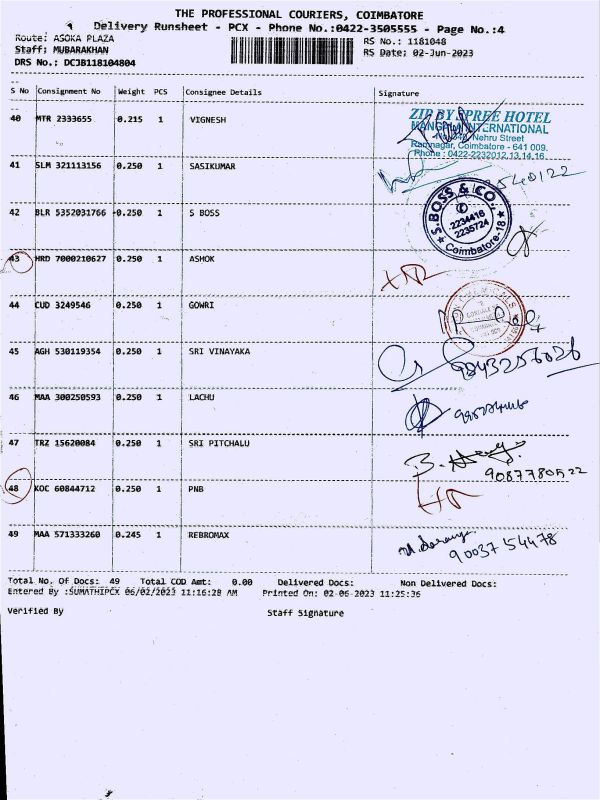 THE PROFESSIONAL COURIERS, COIMBATORE
Delivery Runsheet - PCX - Phone No.:0422-3505555 - Page No.:4
Route: ASOKA PLAZA
RS No.: 1181048
Staff: MUBARAKHAN
RS Date: 02-Jun-2023
DRS No.: DCJB118104804
S No Consignment No Weight PCS Consignee Details Signature
40 MTR 2333655 0.215 1 VIGNESH
ZIP BY SPREE HOTEL
INTERNATIONAL
Nehru Street
Ramnagar, Coimbatore - 641 009.
Phone : 0422-2232012,13,14,16
41 SLM 321113156 0.250 1 SASIKUMAR
42 BLR 5352031766 0.250 1 S BOSS
S.BOSS & CO.,
2234416
2235724
Coimbatore-18
43 HRD 7000210627 0.250 1 ASHOK
44 CUD 3249546 0.250 1 GOWRI
45 AGH 530119354 0.250 1 SRI VINAYAKA
9843257026
46 MAA 300250593 0.250 1 LACHU
47 TRZ 15620084 0.250 1 SRI PITCHALU
9087780522
48 KOC 60844712 0.250 1 PNB
49 MAA 571333260 0.245 1 REBROMAX
90037 54478
Total No. Of Docs: 49 Total COD Amt: 0.00 Delivered Docs: Non Delivered Docs:
Entered By :SUMATHIPCX 06/02/2023 11:16:28 AM Printed On: 02-06-2023 11:25:36
Verified By Staff Signature